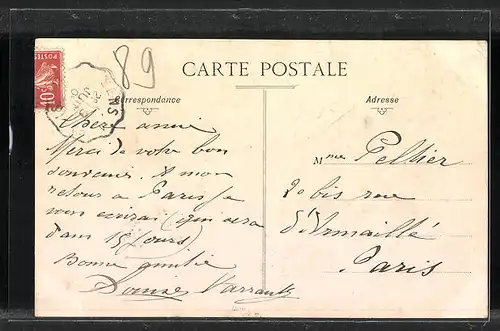 89
CARTE POSTALE
Correspondance
Adresse
POSTES
10c
Chère amie
Merci de votre bon
souvenir. A mon
retour à Paris je
vous écrirai (qui sera
dans 15 jours)
Bonne amitié
Mme Peltier
20 bis rue
d'Armaillé
Paris